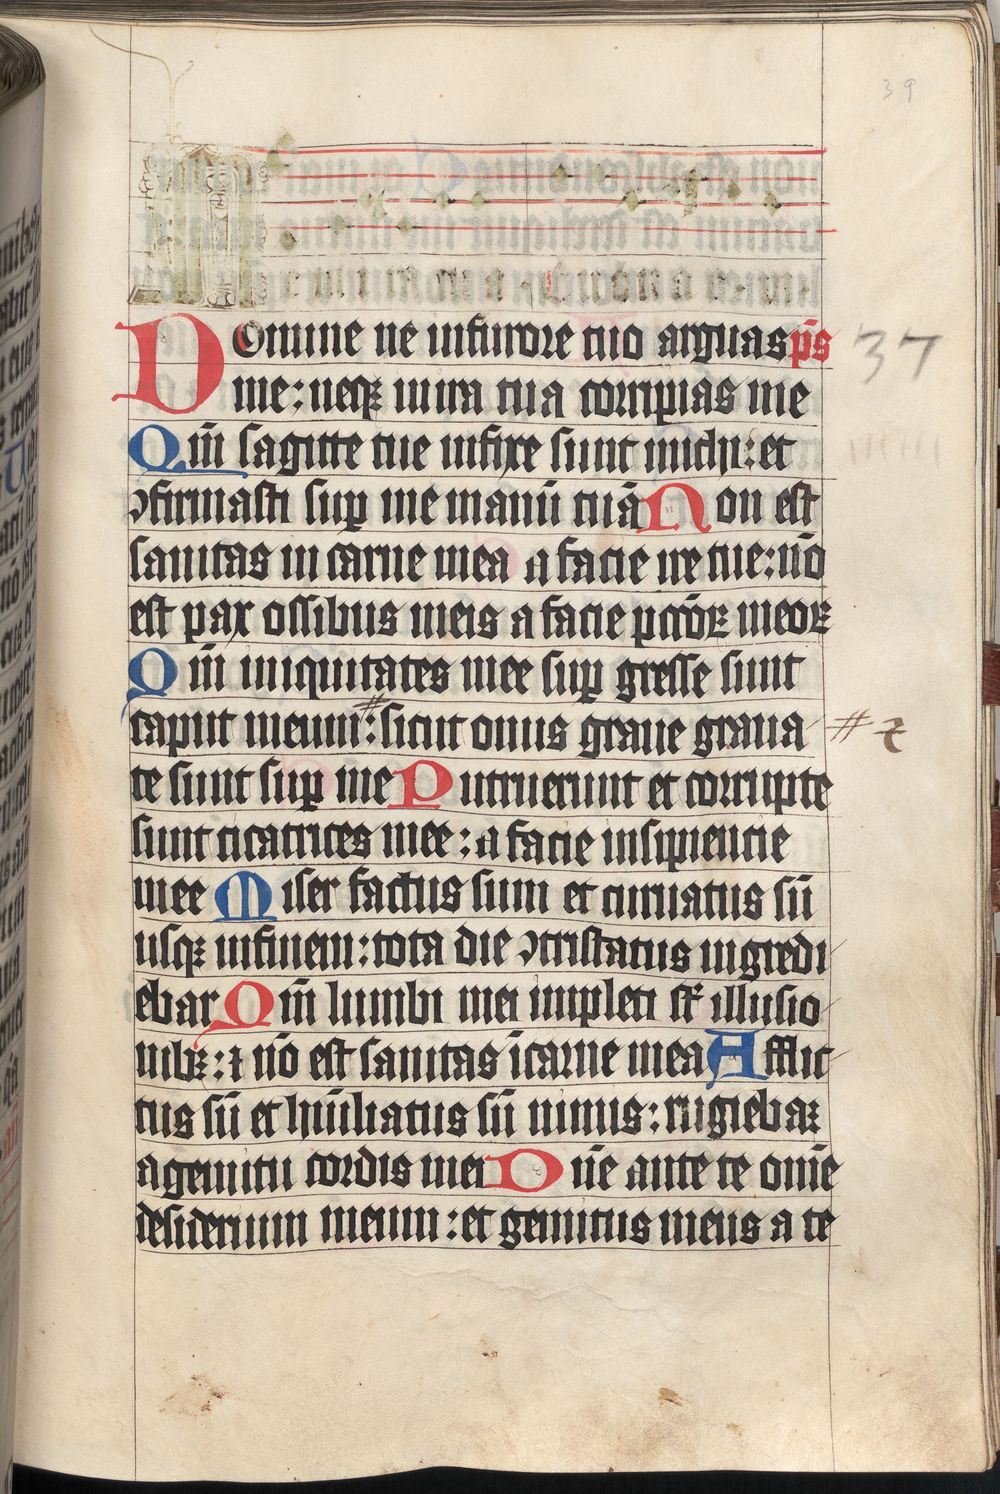 39
Domine ne infurore tuo arguas p̄s
37
me: neqꝫ in ira tua corripias me
Qm̄ sagitte tue infixe sunt michi: et
ꝯfirmasti suꝑ me manū tuā Non est
sanitas in carne mea a facie ire tue: nō
est pax ossibus meis a facie pctōꝝ meoꝝ
Qm̄ iniquitates mee suꝑ gresse sunt
caput meum: sicut onus graue graua
# 
te sunt suꝑ me Putruerunt et corrupte
sunt cicatrices mee: a facie insipiencie
mee Miser factus sum et curuatus sū
usqꝫ infinem: tota die ꝯtristatus ingredi
ebar Qm̄ lumbi mei impleti sr̄ illusio
nibꝫ: ⁊ nō est sanitas ī carne mea Afflic
tus sū et hūiliatus sū nimis: rugiebaꝛ
agemitu cordis mei Dn̄e ante te om̄e
desiderium meum: et gemitus meus a te